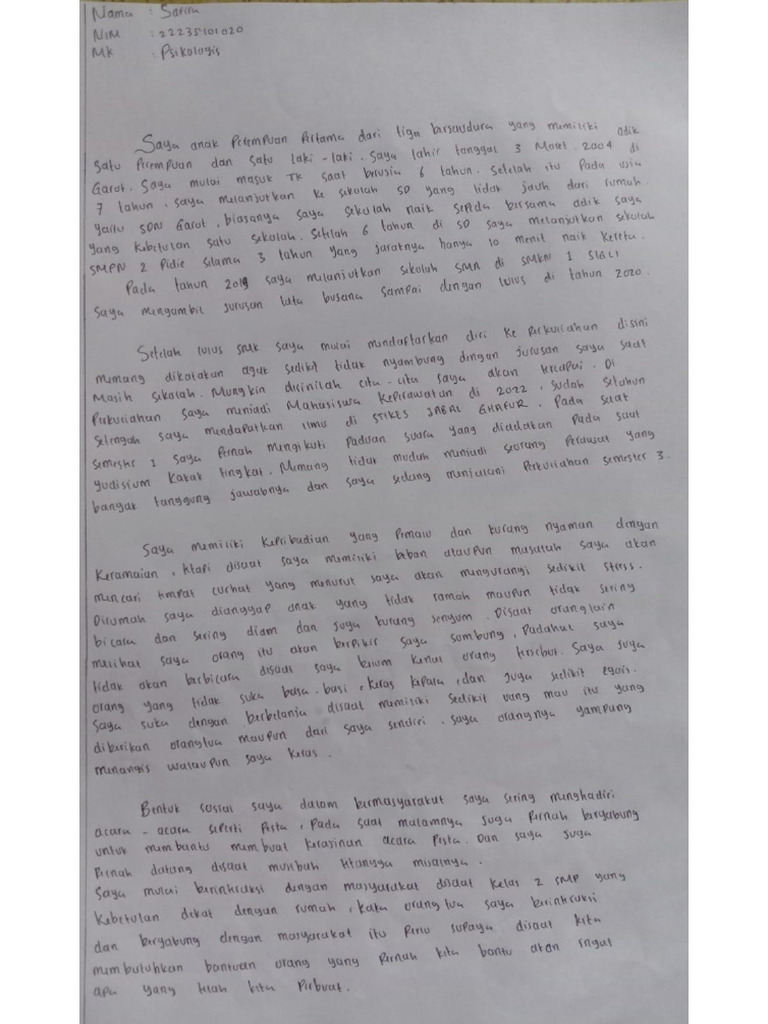 Nama : Safira
NIM : 22235101020
MK : Psikologis
Saya anak Perempuan Pertama dari tiga bersaudara yang memiliki adik
satu Perempuan dan satu laki-laki. Saya lahir tanggal 3 Maret 2004 di
Garot. Saya mulai masuk TK saat berusia 6 tahun. Setelah itu Pada usia
7 tahun, saya melanjutkan ke sekolah SD yang tidak jauh dari rumah.
yaitu SDN Garot, biasanya saya sekolah naik Sepeda bersama adik saya
yang kebetulan satu sekolah. Setelah 6 tahun di SD saya melanjutkan sekolah
SMPN 2 Pidie selama 3 tahun yang jaraknya hanya 10 menit naik kereta.
Pada tahun 2019 saya melanjutkan sekolah SMA di SMKN 1 SIGLI
Saya mengambil jurusan tata busana sampai dengan lulus di tahun 2020.
Setelah lulus smk saya mulai mendaftarkan diri ke Perkuliahan disini
memang dikatakan agak sedikit tidak nyambung dengan jurusan saya saat
Masih sekolah. Mungkin disinilah cita-cita saya akan tercapai. Di
Perkuliahan saya menjadi Mahasiswa Keperawatan di 2022, sudah setahun
setengah saya mendapatkan ilmu di STIKES JABAL GHAFUR. Pada saat
semester 2 saya Pernah mengikuti Paduan suara yang diadakan Pada saat
yudisium kakak tingkat. Memang tidak mudah menjadi seorang Perawat yang
banyak tanggung jawabnya dan saya sedang menjalani Perkuliahan semester 3.
Saya memiliki kepribadian yang Pemalu dan kurang nyaman dengan
keramaian, tetapi disaat saya memiliki beban ataupun masalah saya akan
mencari tempat curhat yang menurut saya akan mengurangi sedikit stress.
Dirumah saya dianggap anak yang tidak ramah maupun tidak sering
bicara dan sering diam dan juga kurang senyum. Disaat orang lain
melihat saya orang itu akan berpikir saya sombong, Padahal saya
tidak akan berbicara disaat saya belum kenal orang tersebut. Saya juga
orang yang tidak suka basa-basi, keras kepala, dan juga sedikit egois.
Saya suka dengan berbelanja disaat memiliki sedikit uang mau itu yang
diberikan orangtua maupun dari saya sendiri. saya orangnya gampang
menangis walaupun saya keras.
Bentuk sosial saya dalam bermasyarakat saya sering menghadiri
acara-acara seperti Pesta, Pada saat malamnya juga Pernah bergabung
untuk membantu membuat kerasinan acara Pesta. Dan saya juga
Pernah datang disaat musibah tetangga misalnya.
Saya mulai berintraksi dengan masyarakat disaat kelas 2 SMP yang
kebetulan dekat dengan rumah, kata orangtua saya berintraksi
dan bergabung dengan masyarakat itu Perlu supaya disaat kita
membutuhkan bantuan orang yang pernah kita bantu akan ingat
apa yang telah kita Perbuat.